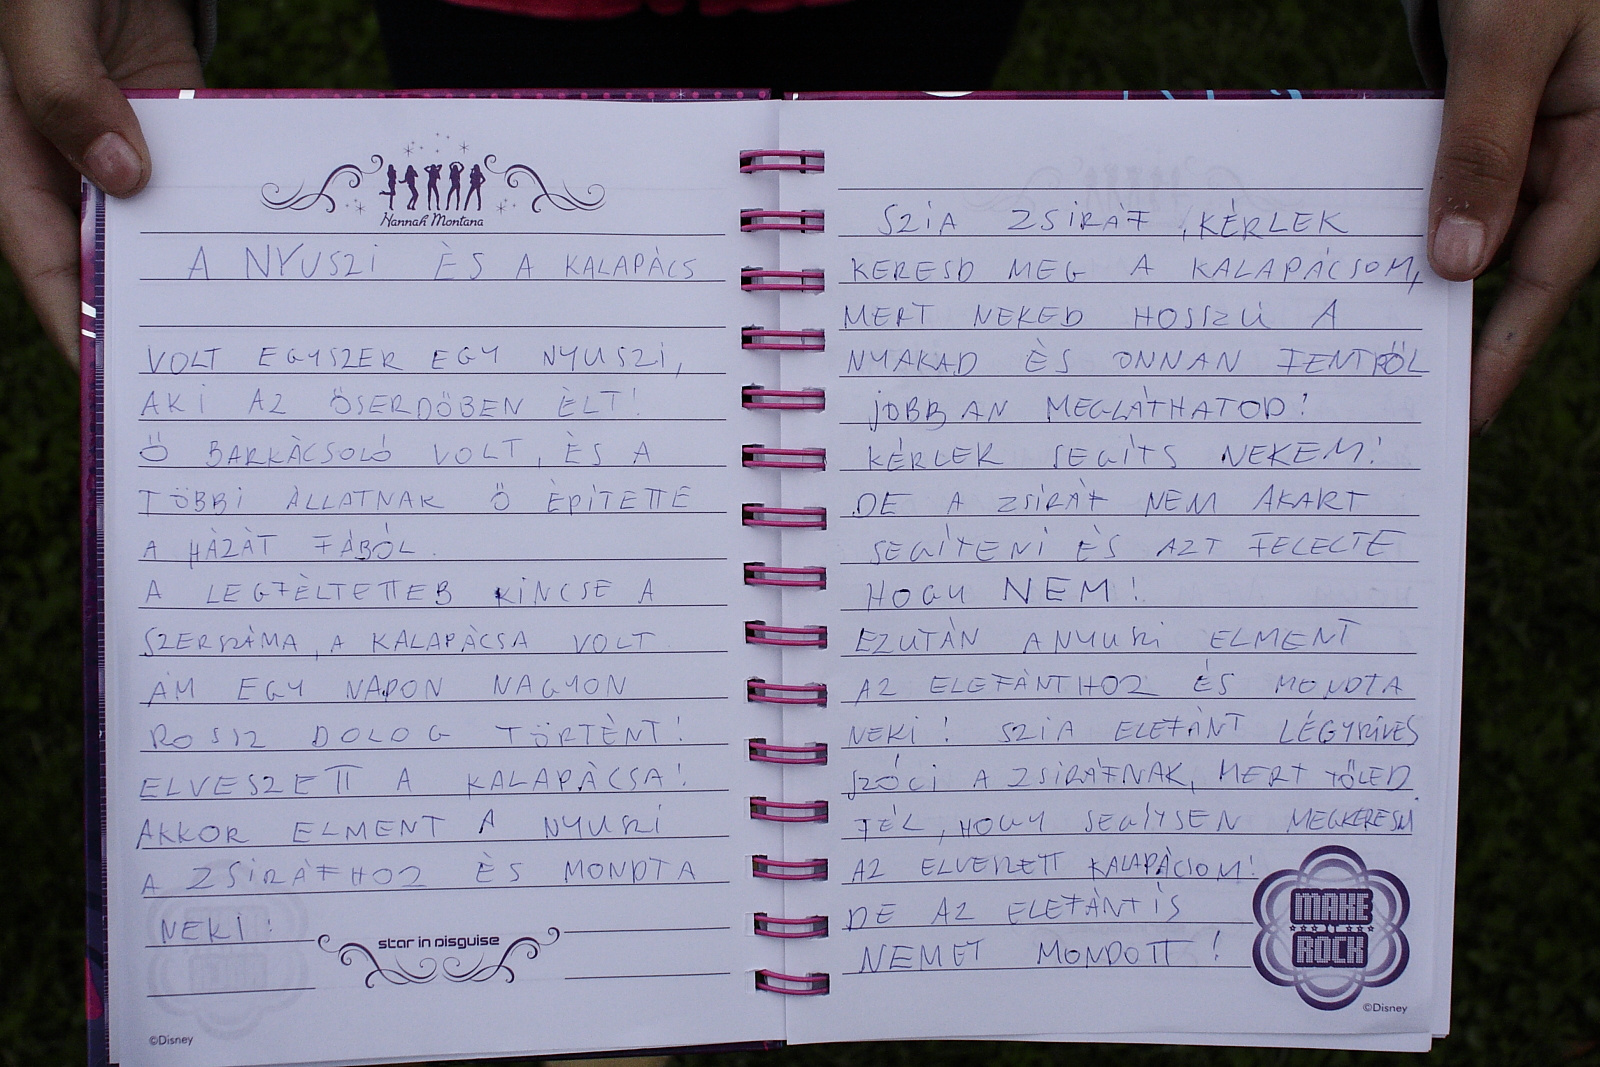 Hannah Montana
A NYUSZI ÈS A KALAPÀCS
VOLT EGYSZER EGY NYUSZI,
AKI AZ ÖSERDÖBEN ÈLT!
Ö BARKÀCSOLÓ VOLT, ÈS A
TÖBBI ÀLLATNAK Ö ÈPÍTETTE
A HÁZÀT FÁBÓL.
A LEGFÈLTETTEB KINCSE A
SZERSZÀMA, A KALAPÀCSA VOLT
ÀM EGY NAPON NAGYON
ROSSZ DOLOG TÖRTÈNT!
ELVESZETT A KALAPÀCSA!
AKKOR ELMENT A NYUSZI
A ZSIRÁFHOZ ÈS MONDTA
NEKI:
star in disguise
©Disney
SZIA ZSIRÁF, KÉRLEK
KERESD MEG A KALAPÁCSOM,
MERT NEKED HOSSZÚ A
NYAKAD ÈS ONNAN FENTRÖL
JOBBAN MEGLÁTHATOD!
KÉRLEK SEGÍTS NEKEM!
DE A ZSIRÁF NEM AKART
SEGÍTENI ÈS AZT FELELTE
HOGY NEM!
EZUTÁN A NYUSZI ELMENT
AZ ELEFÀNTHOZ ÉS MONDTA
NEKI! SZIA ELEFÀNT LÉGYSZÍVES
SZÓLJ A ZSIRÁFNAK, MERT TÖLED
FÉL, HOGY SEGÍTSEN MEGKERESNI
AZ ELVESZETT KALAPÁCSOM!
DE AZ ELEFÀNT IS
NEMET MONDOTT!
MAKE
IT
ROCK
©Disney